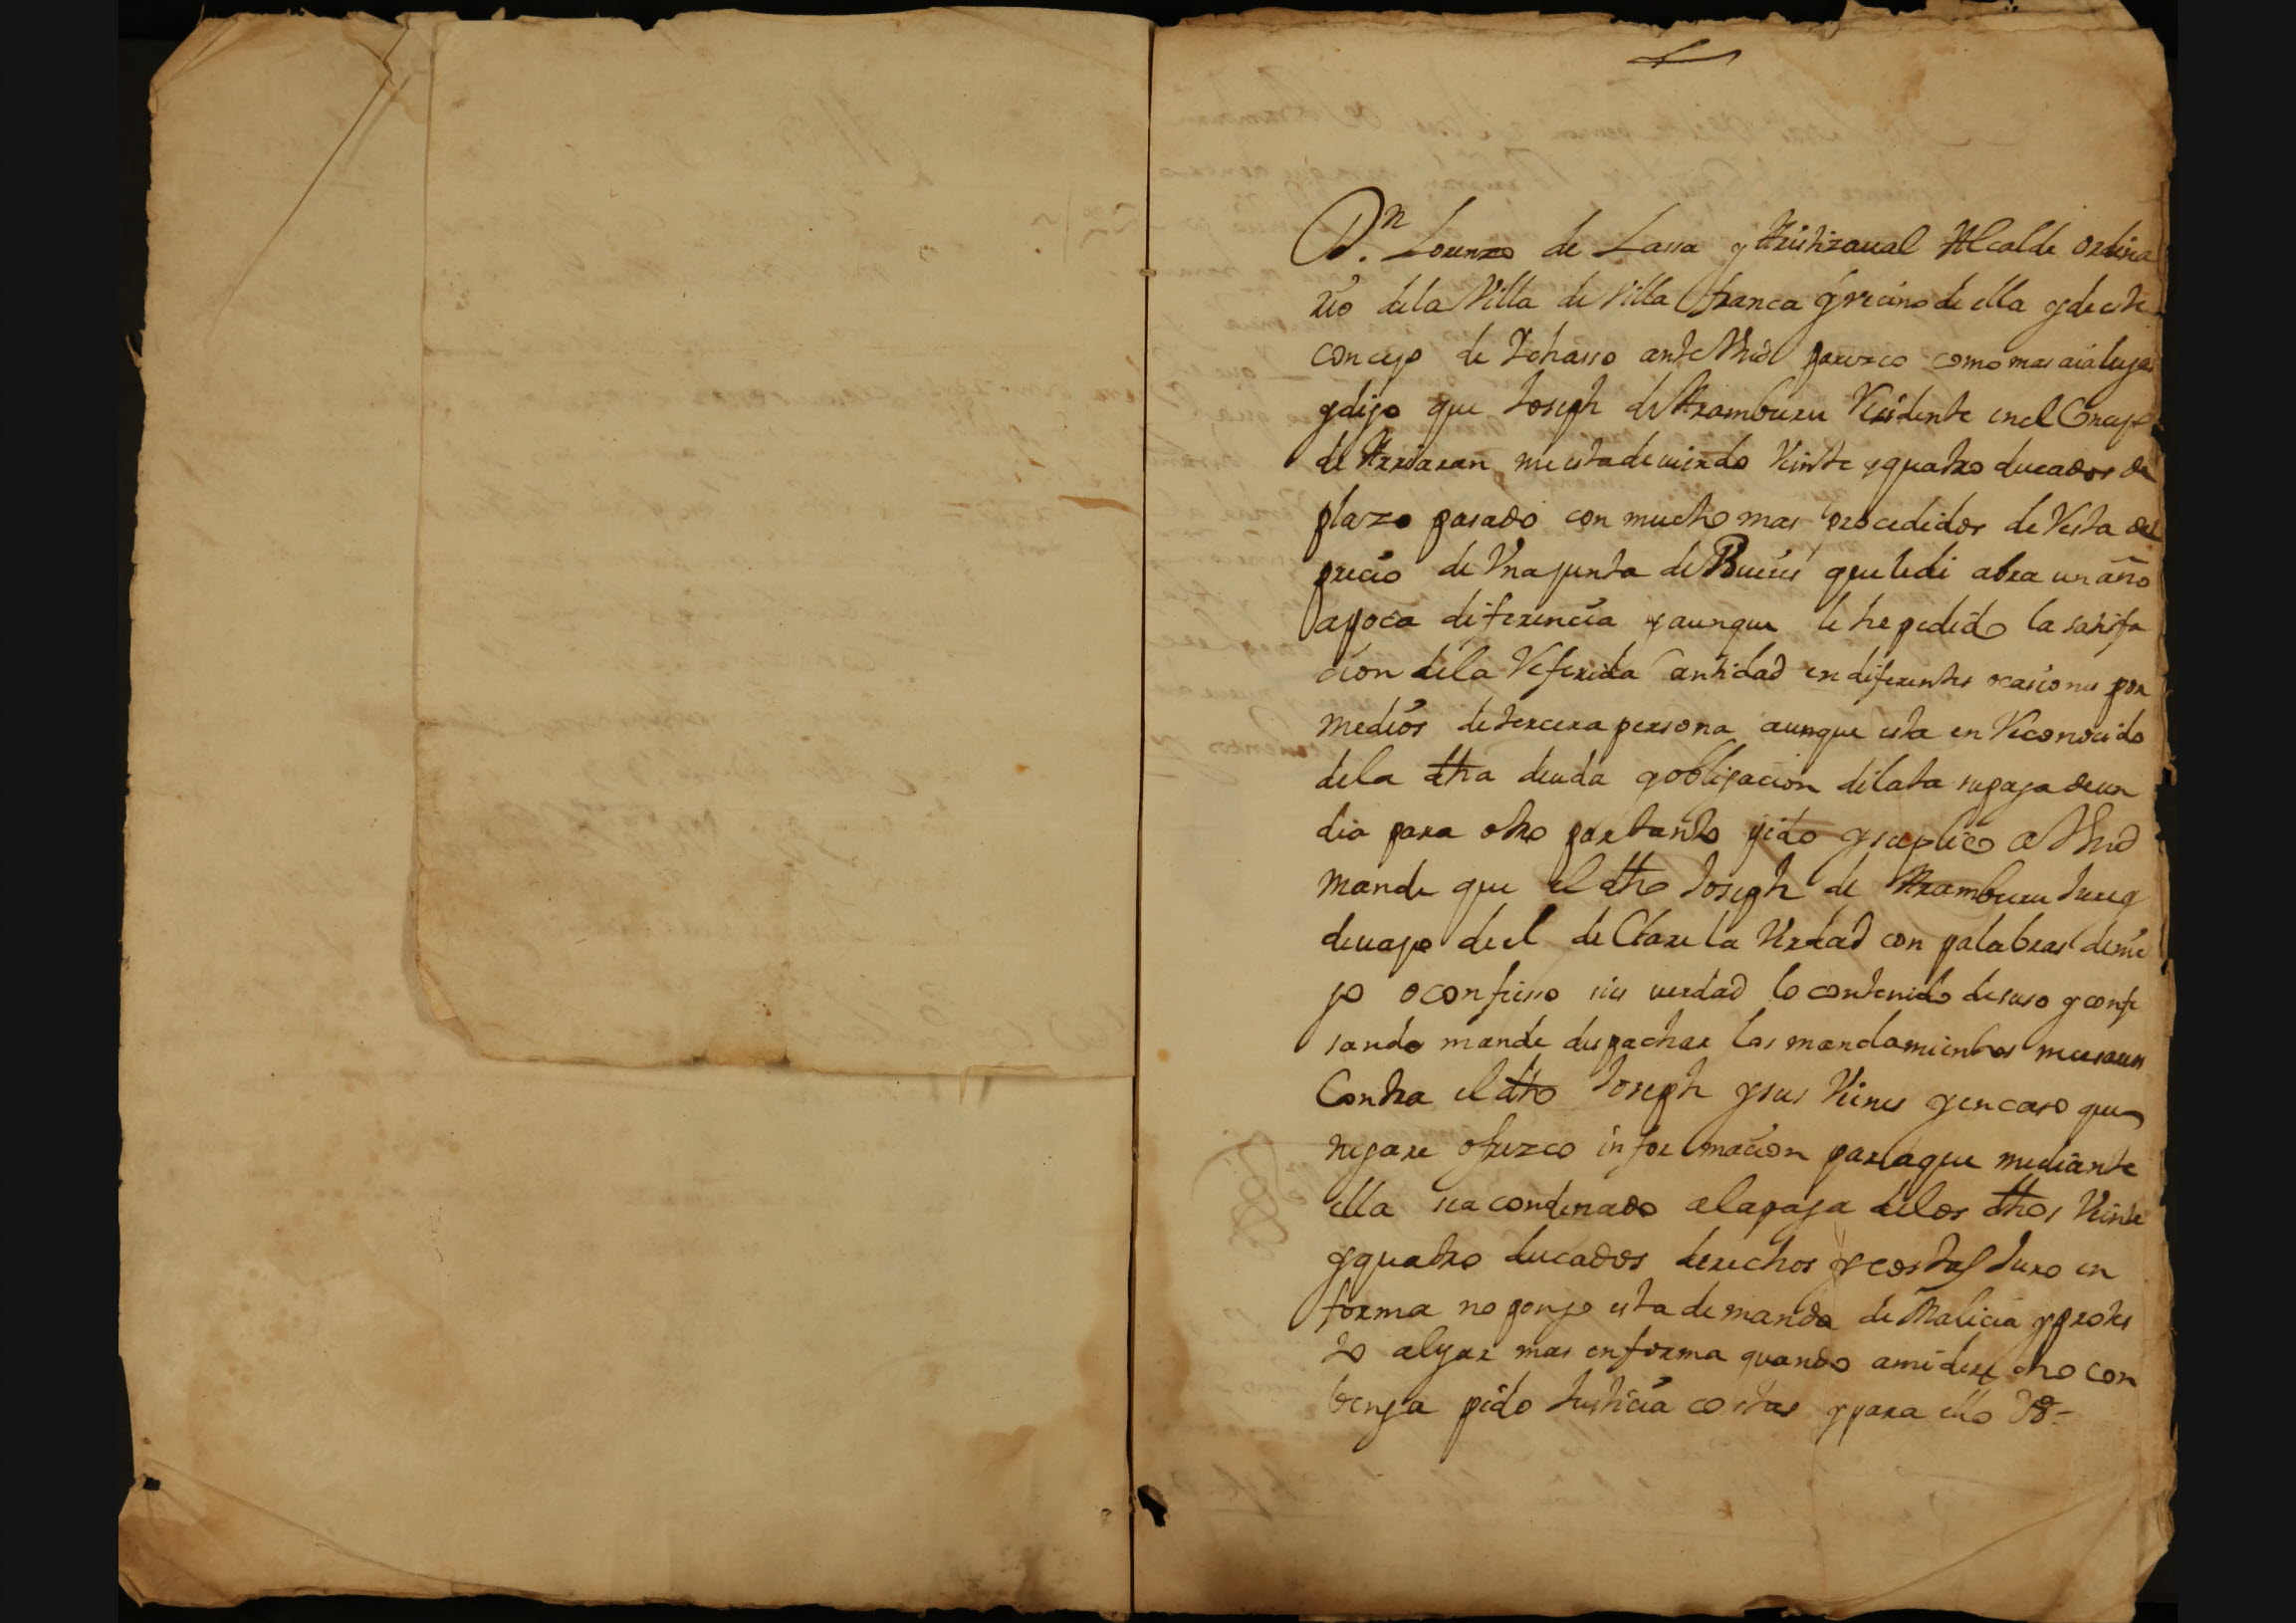 Dn. Lorenzo de Lassa y Aristizaual Alcalde ordina
rio dela Villa de Villa franca y vecino de ella y de este
concejo de Ichasso ante Vmd parezco como mas aia lugar
y digo que Joseph de Aramburu Residente en el Concejo
de Arriaran me esta deuiendo Veinte y quatro ducados de
plazo pasado con mucho mas procedidos de Resta del
precio de Vna junta de Bueies que le di abra un año
apoca diferencia y aunque le he pedido la satisfa
cion dela Referida Cantidad en diferentes ocasiones por
medios de tercera persona aunque esta en Reconocido
dela dha deuda y obligacion dilata su paga de un
dia para otro por tanto pido y suplico a Vmd
mande que el dho Joseph de Aramburu Jure y
deuajo de el declare la Verdad con palabras de nie
go o confieso si es verdad lo contenido de suso y confe
sando mande despachar los mandamientos necesarios
Contra el dho Joseph y sus Vienes y en caso que
negare ofrezco informacion para que mediante
ella sea condenado a la paga de los dhos Veinte
y quatro ducados derechos y costas Juro en
forma no pongo esta demanda de Malicia y protes
to alegar mas en forma quando a mi derecho con
benga pido Justicia costas y para ello Vª